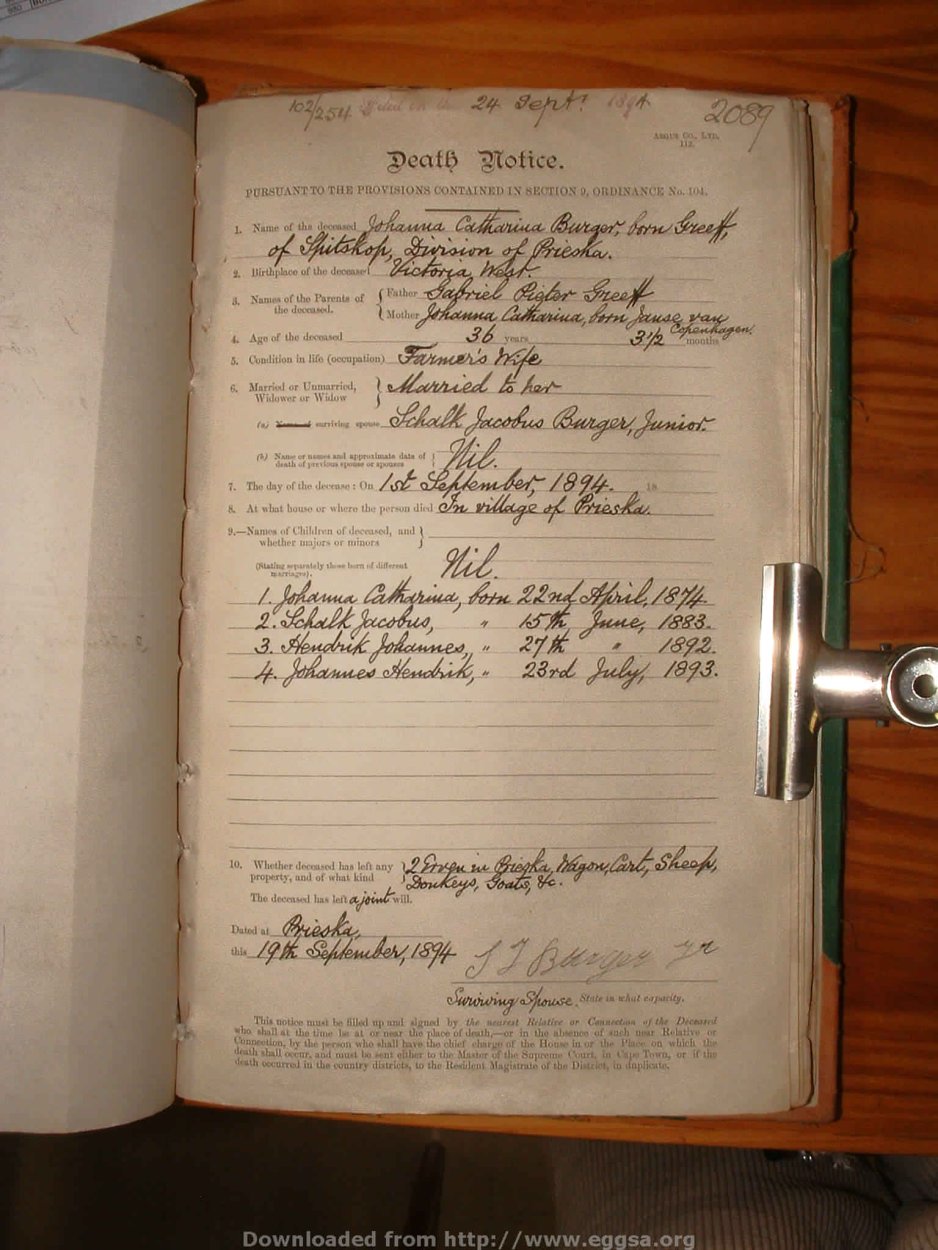 102/254 Filed on the 24 Sept. 1894 2089
ARGUS CO., LTD.
112.
Death Notice.
PURSUANT TO THE PROVISIONS CONTAINED IN SECTION 9, ORDINANCE No. 104.
1. Name of the deceased Johanna Catharina Burger, born Greeff,
of Spitskop, Division of Prieska.
2. Birthplace of the deceased Victoria West.
3. Names of the Parents of the deceased. { Father Gabriel Pieter Greeff
{ Mother Johanna Catharina, born Janse van
Copenhagen.
4. Age of the deceased 36 years 3 1/2 months
5. Condition in life (occupation) Farmer's Wife
6. Married or Unmarried, Widower or Widow } Married to her
(a) surviving spouse Schalk Jacobus Burger, Junior.
(b) Name or names and approximate date of death of previous spouse or spouses } Nil.
7. The day of the decease: On 1st September, 1894. 18
8. At what house or where the person died In village of Prieska.
9.—Names of Children of deceased, and whether majors or minors }
(Stating separately those born of different marriages). Nil.
1. Johanna Catharina, born 22nd April, 1874.
2. Schalk Jacobus, " 15th June, 1883.
3. Hendrik Johannes, " 27th " 1892.
4. Johannes Hendrik, " 23rd July, 1893.
10. Whether deceased has left any property, and of what kind } 2 Erven in Prieska, Wagon, Cart, Sheep,
Donkeys, Goats, &c.
The deceased has left a joint will.
Dated at Prieska,
this 19th September, 1894 S J Burger Jr
Surviving Spouse. State in what capacity.
This notice must be filled up and signed by the nearest Relative or Connection of the Deceased
who shall at the time be at or near the place of death,—or in the absence of such near Relative or
Connection, by the person who shall have the chief charge of the House in or the Place on which the
death shall occur, and must be sent either to the Master of the Supreme Court, in Cape Town, or if the
death occurred in the country districts, to the Resident Magistrate of the District, in duplicate.
Downloaded from http://www.eggsa.org